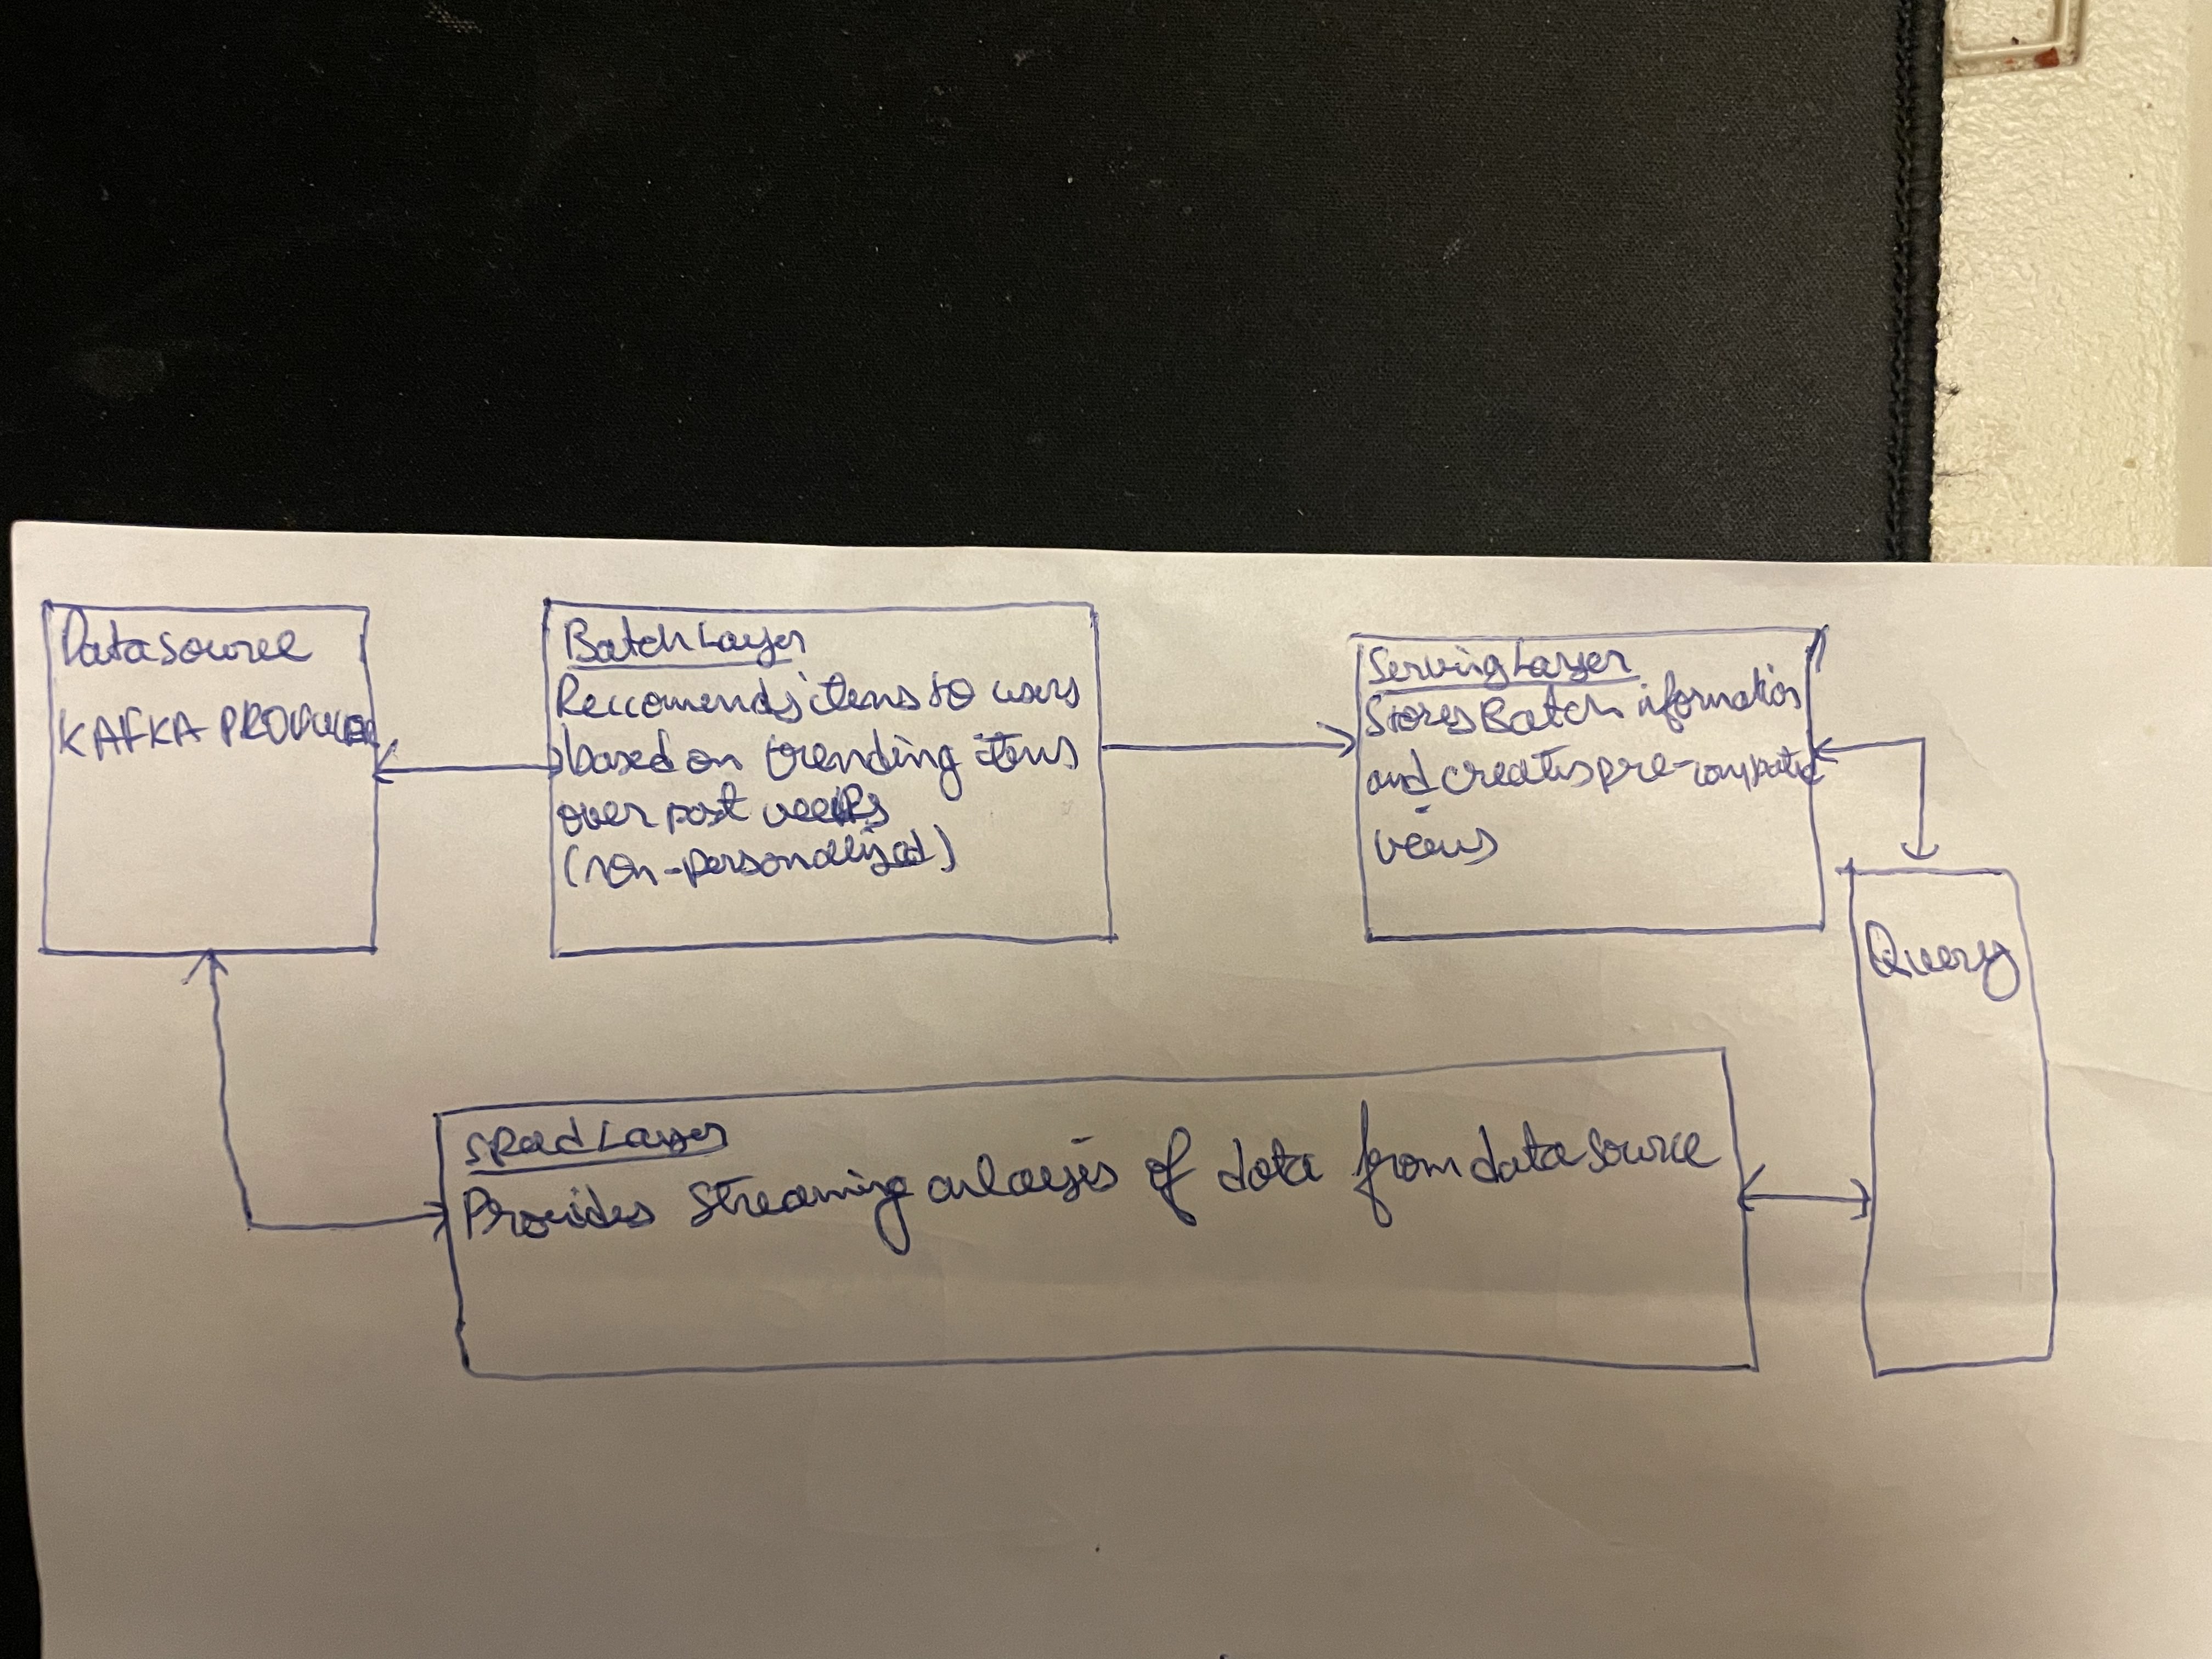 Data source
KAFKA PRODUCER
Batch Layer
Reccomends items to users
based on trending items
over past weeks
(non-personalised)
Serving Layer
Stores Batch information
and creates pre-computed
views
Query
Speed Layer
Provides Streaming analaysis of data from data source